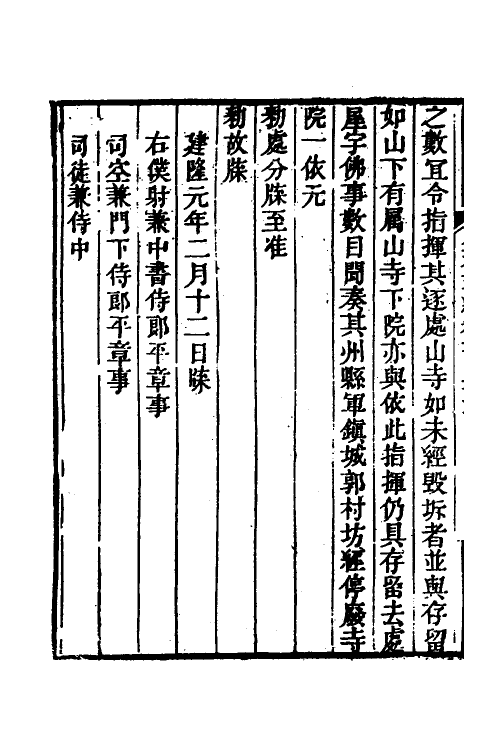 之數宜令指揮其逐處山寺如未經毀坼者並與存留
如山下有属山寺下院亦與依此指揮仍具存留去處
屋字佛事數目聞奏其州縣軍鎮城郭村坊經停廢寺
院一依元
勑處分牒至准
勑故牒
建隆元年二月十二日牒
右僕射兼中書侍郎平章事
司空兼門下侍郎平章事
司徒兼侍中